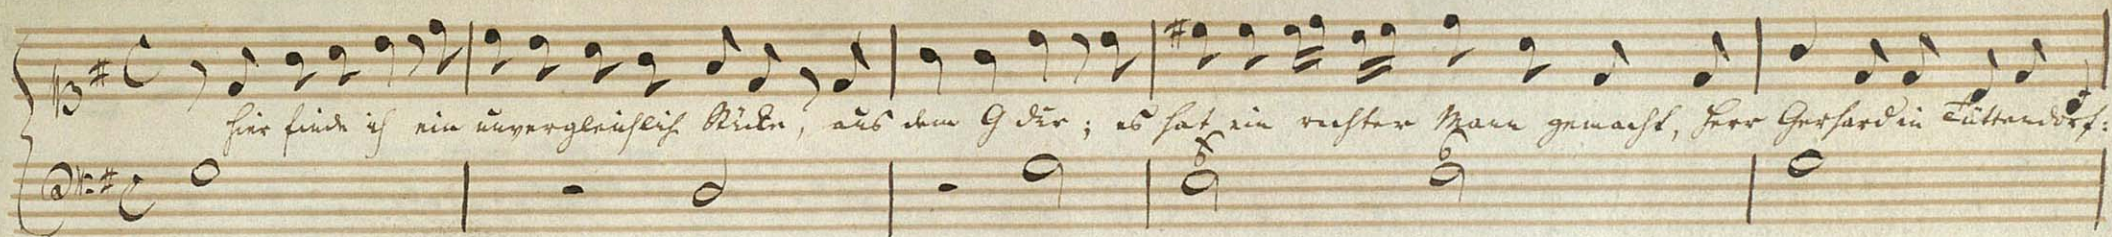 hier finde ich ein unvergleichlich Stücke, aus dem G dur; es hat ein rechter Mann gemacht, Herr Gerhard in Tüttendorf:
6 6